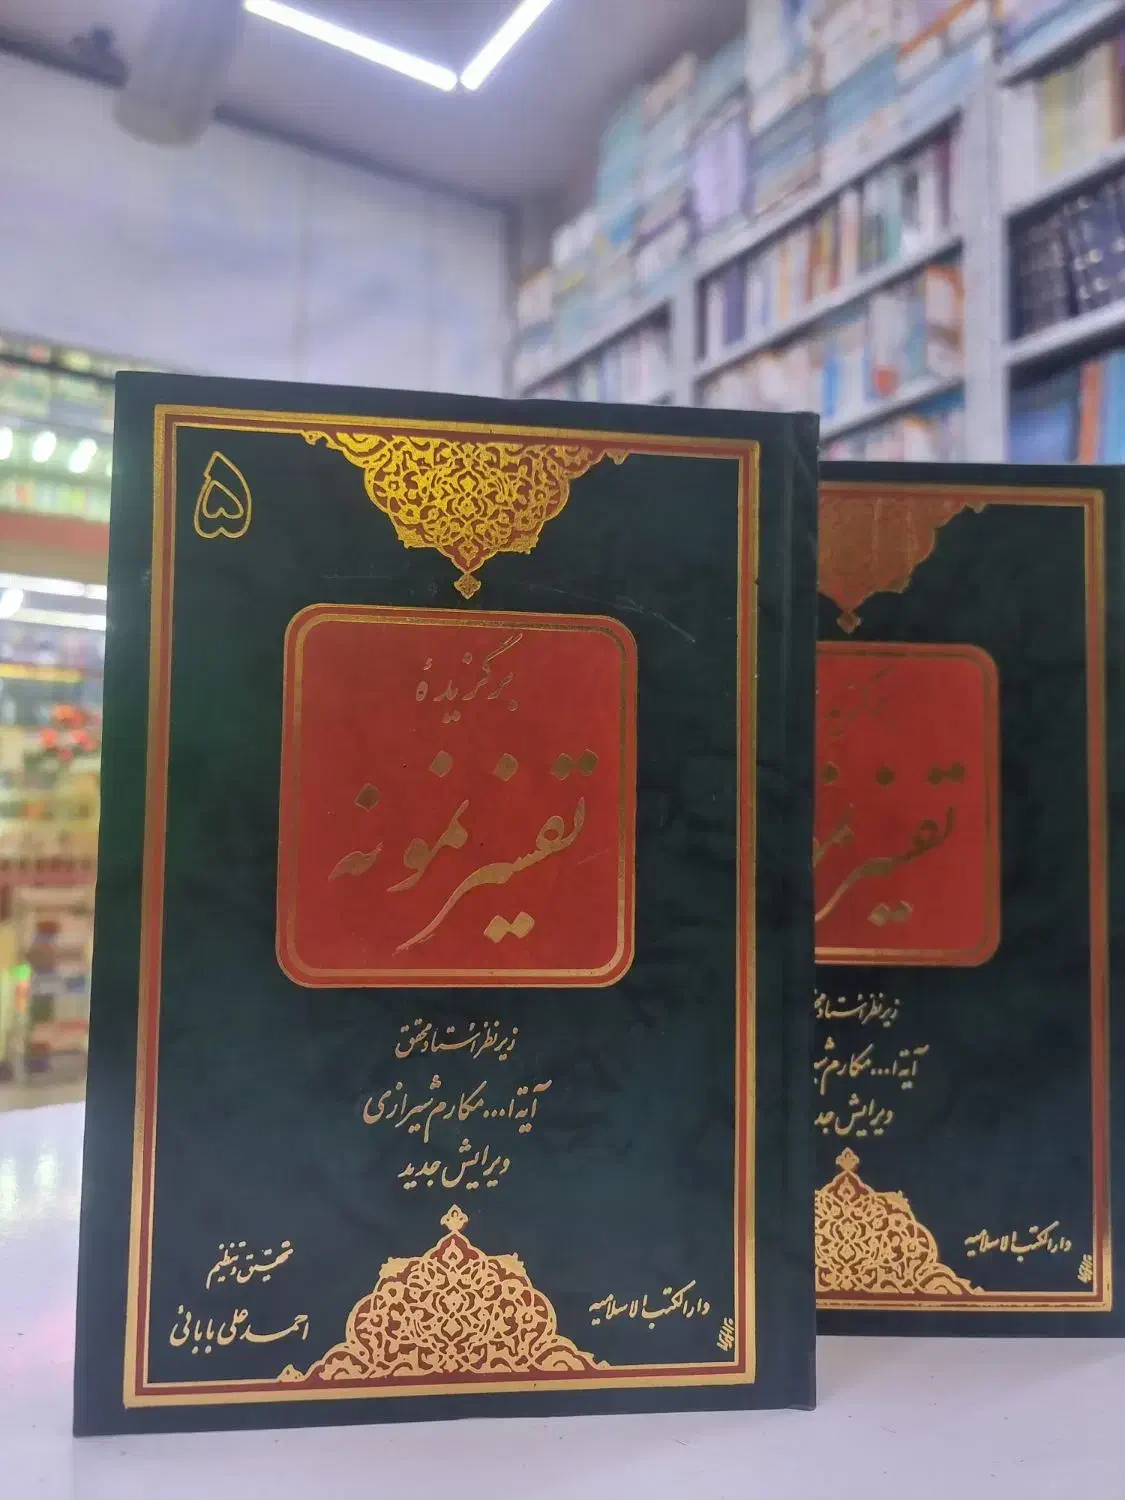 ۵
برگزیدهٔ
تفسیر نمونه
زیر نظر استاد محقق
آیة ا... مکارم شیرازی
ویرایش جدید
تحقیق و تنظیم
احمد علی بابائی
دارالکتب الاسلامیه
تفسیر
زیر نظر استاد
آیة ا... مکارم
ویرایش
دارالکتب الاسلامیه